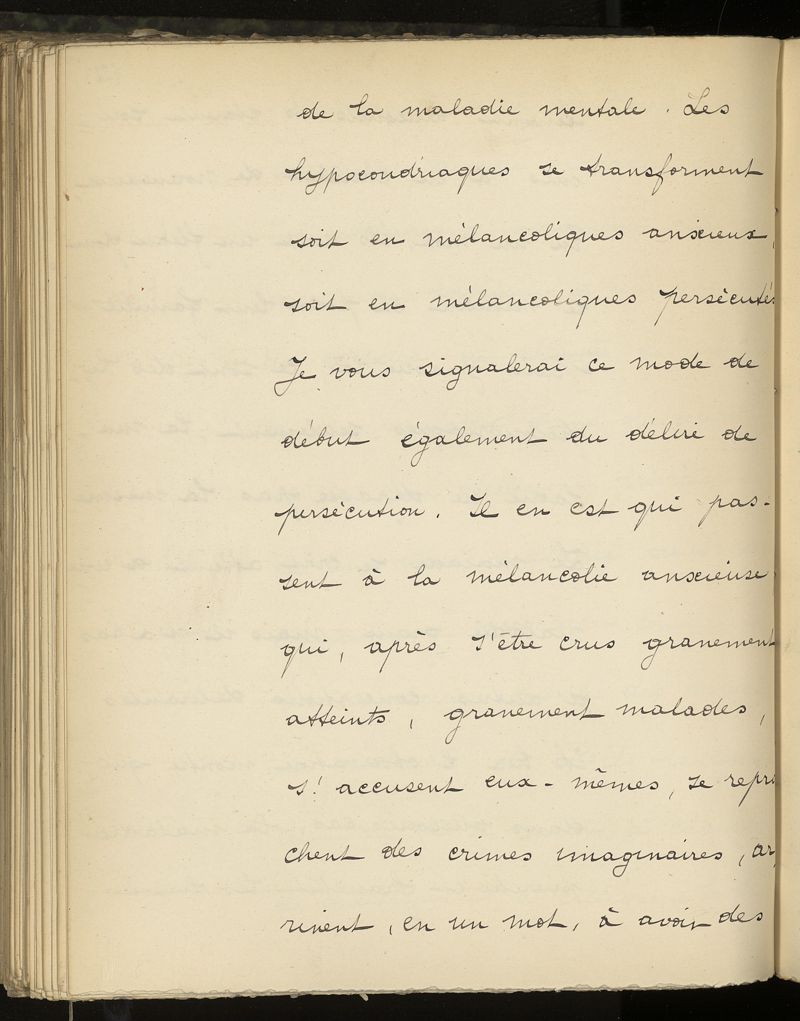 de la maladie mentale. Les
hypocondriaques se transforment
soit en mélancoliques anxieux,
soit en mélancoliques persécutés
Je vous signalerai ce mode de
début également du délire de
persécution. Il en est qui pas-
sent à la mélancolie anxieuse,
qui, après s'être crus gravement
atteints, gravement malades,
s'accusent eux-mêmes, se repro
chent des crimes imaginaires, ar,
rivent, en un mot, à avoir des